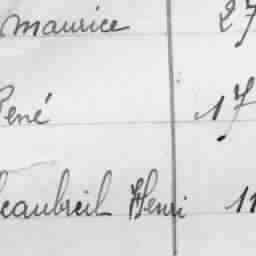 Maurice 27
René 17
Henri 11